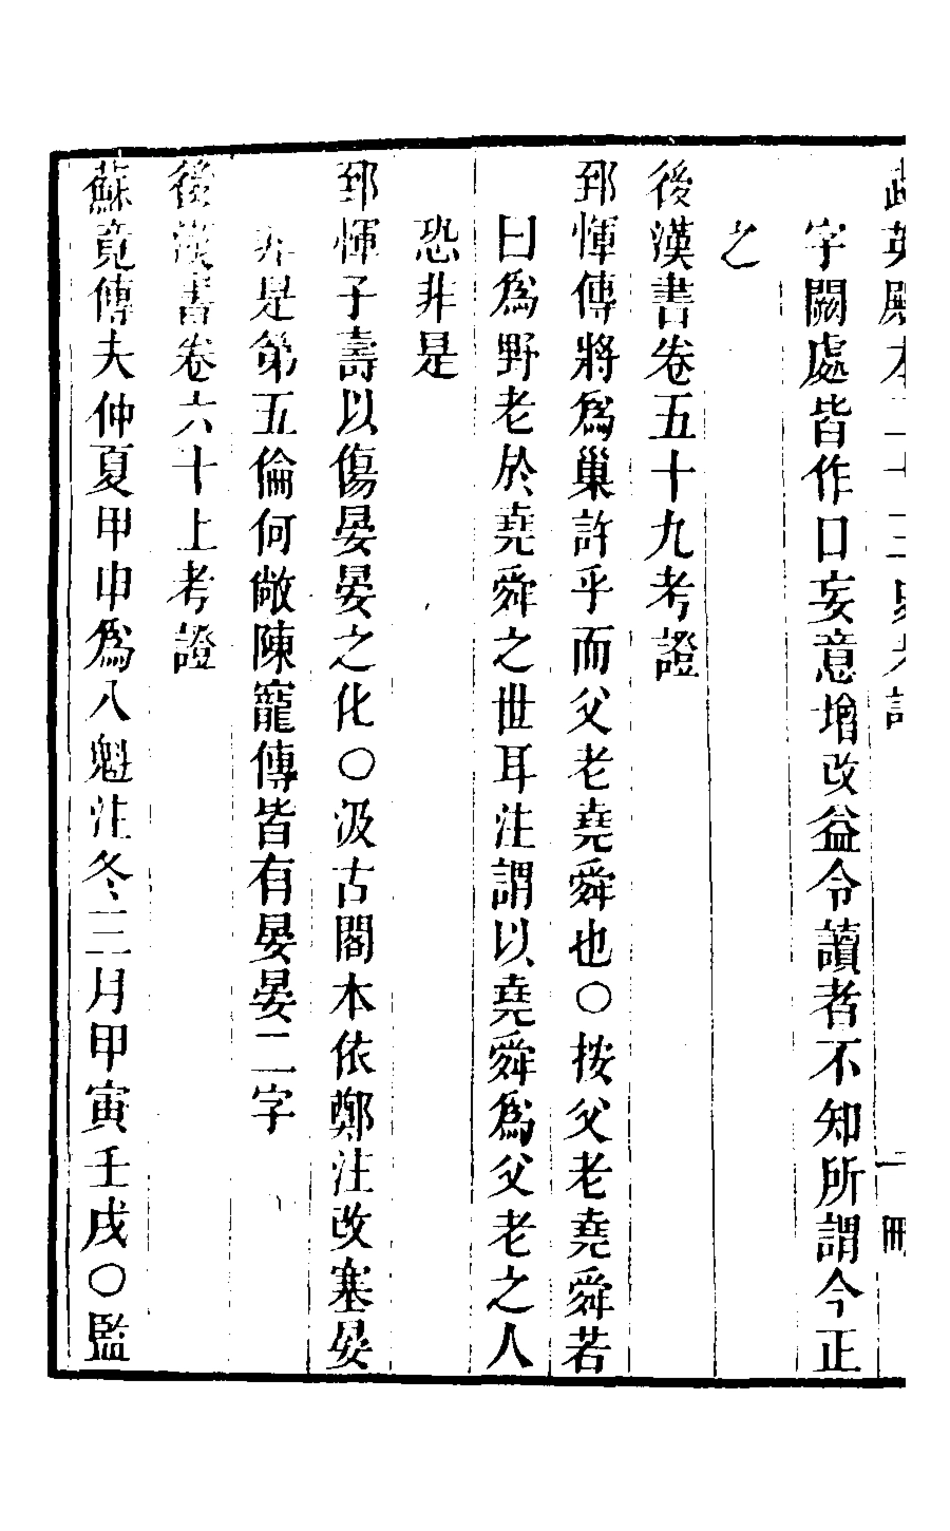 武英殿本二十三史考證 一冊
字闕處皆作口妄意增改益令讀者不知所謂今正
之
後漢書卷五十九考證
郅惲傳將爲巢許乎而父老堯舜也○按父老堯舜若
曰爲野老於堯舜之世耳注謂以堯舜爲父老之人
恐非是
郅惲子壽以傷晏晏之化○汲古閣本依鄭注改塞晏
非是第五倫何敞陳寵傳皆有晏晏二字
後漢書卷六十上考證
蘇竟傳夫仲夏甲申爲八魁注冬三月甲寅壬戌○監